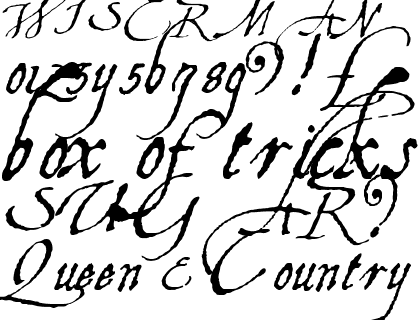 WISERMAN
0123456789?! £
box of tricks
SUGAR?
Queen & Country